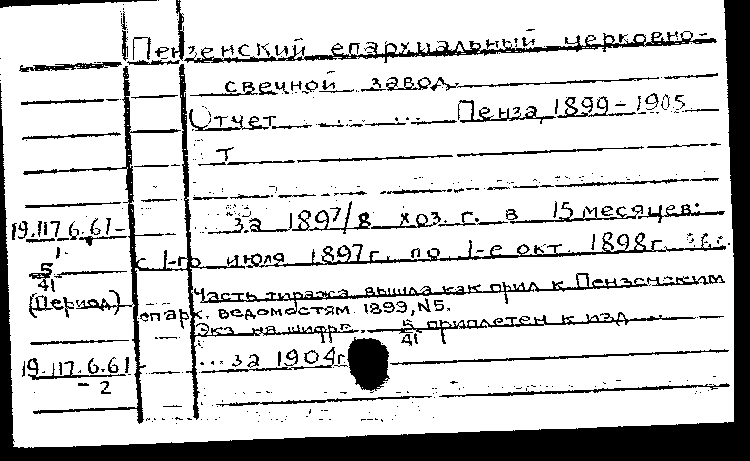 Пензенский епархиальный церковно-
свечной завод.
Отчет ... ... Пенза, 1899-1905
Т
19.117.6.61- за 1897/8 хоз. г. в 15 месяцев:
1.
с 1-го июля 1897г. по 1-е окт. 1898г.
5/41
(Период) Часть тиража вышла как прил к Пензенским
епарх. ведомостям 1899, N5.
Экз на шифре 5/41 приплетен к изд ...
19.117.6.61- ...за 1904г
-2